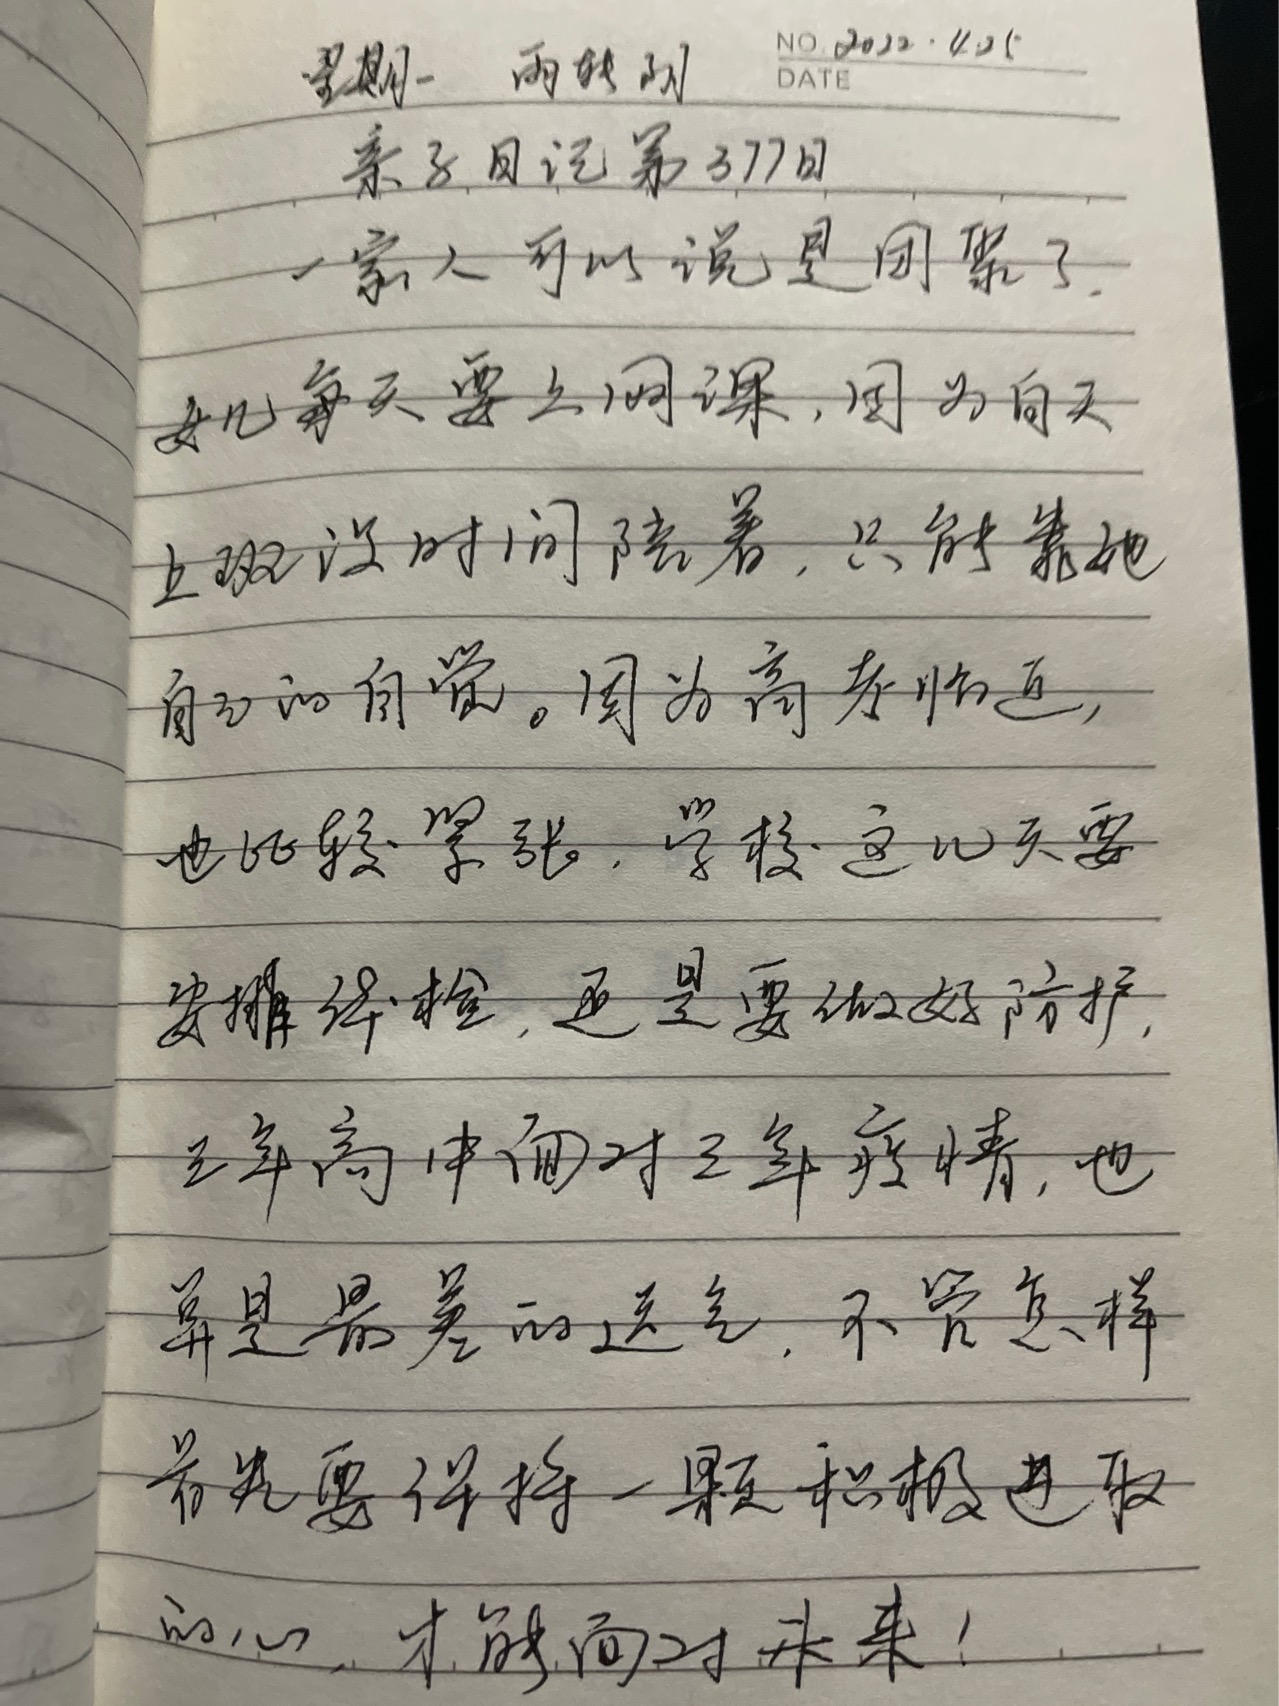 NO. 2022.4.25
星期一 雨转阴
DATE
亲子日记第377日
一家人可以说是团聚了.
女儿每天要上网课,因为白天
上班没时间陪着,只能靠她
自己的自觉。因为高考临近,
也比较紧张.学校这几天要
安排体检,还是要做好防护,
三年高中面对三年疫情,也
算是最差的运气,不管怎样
首先要保持一颗积极进取
的心,才能面对未来!